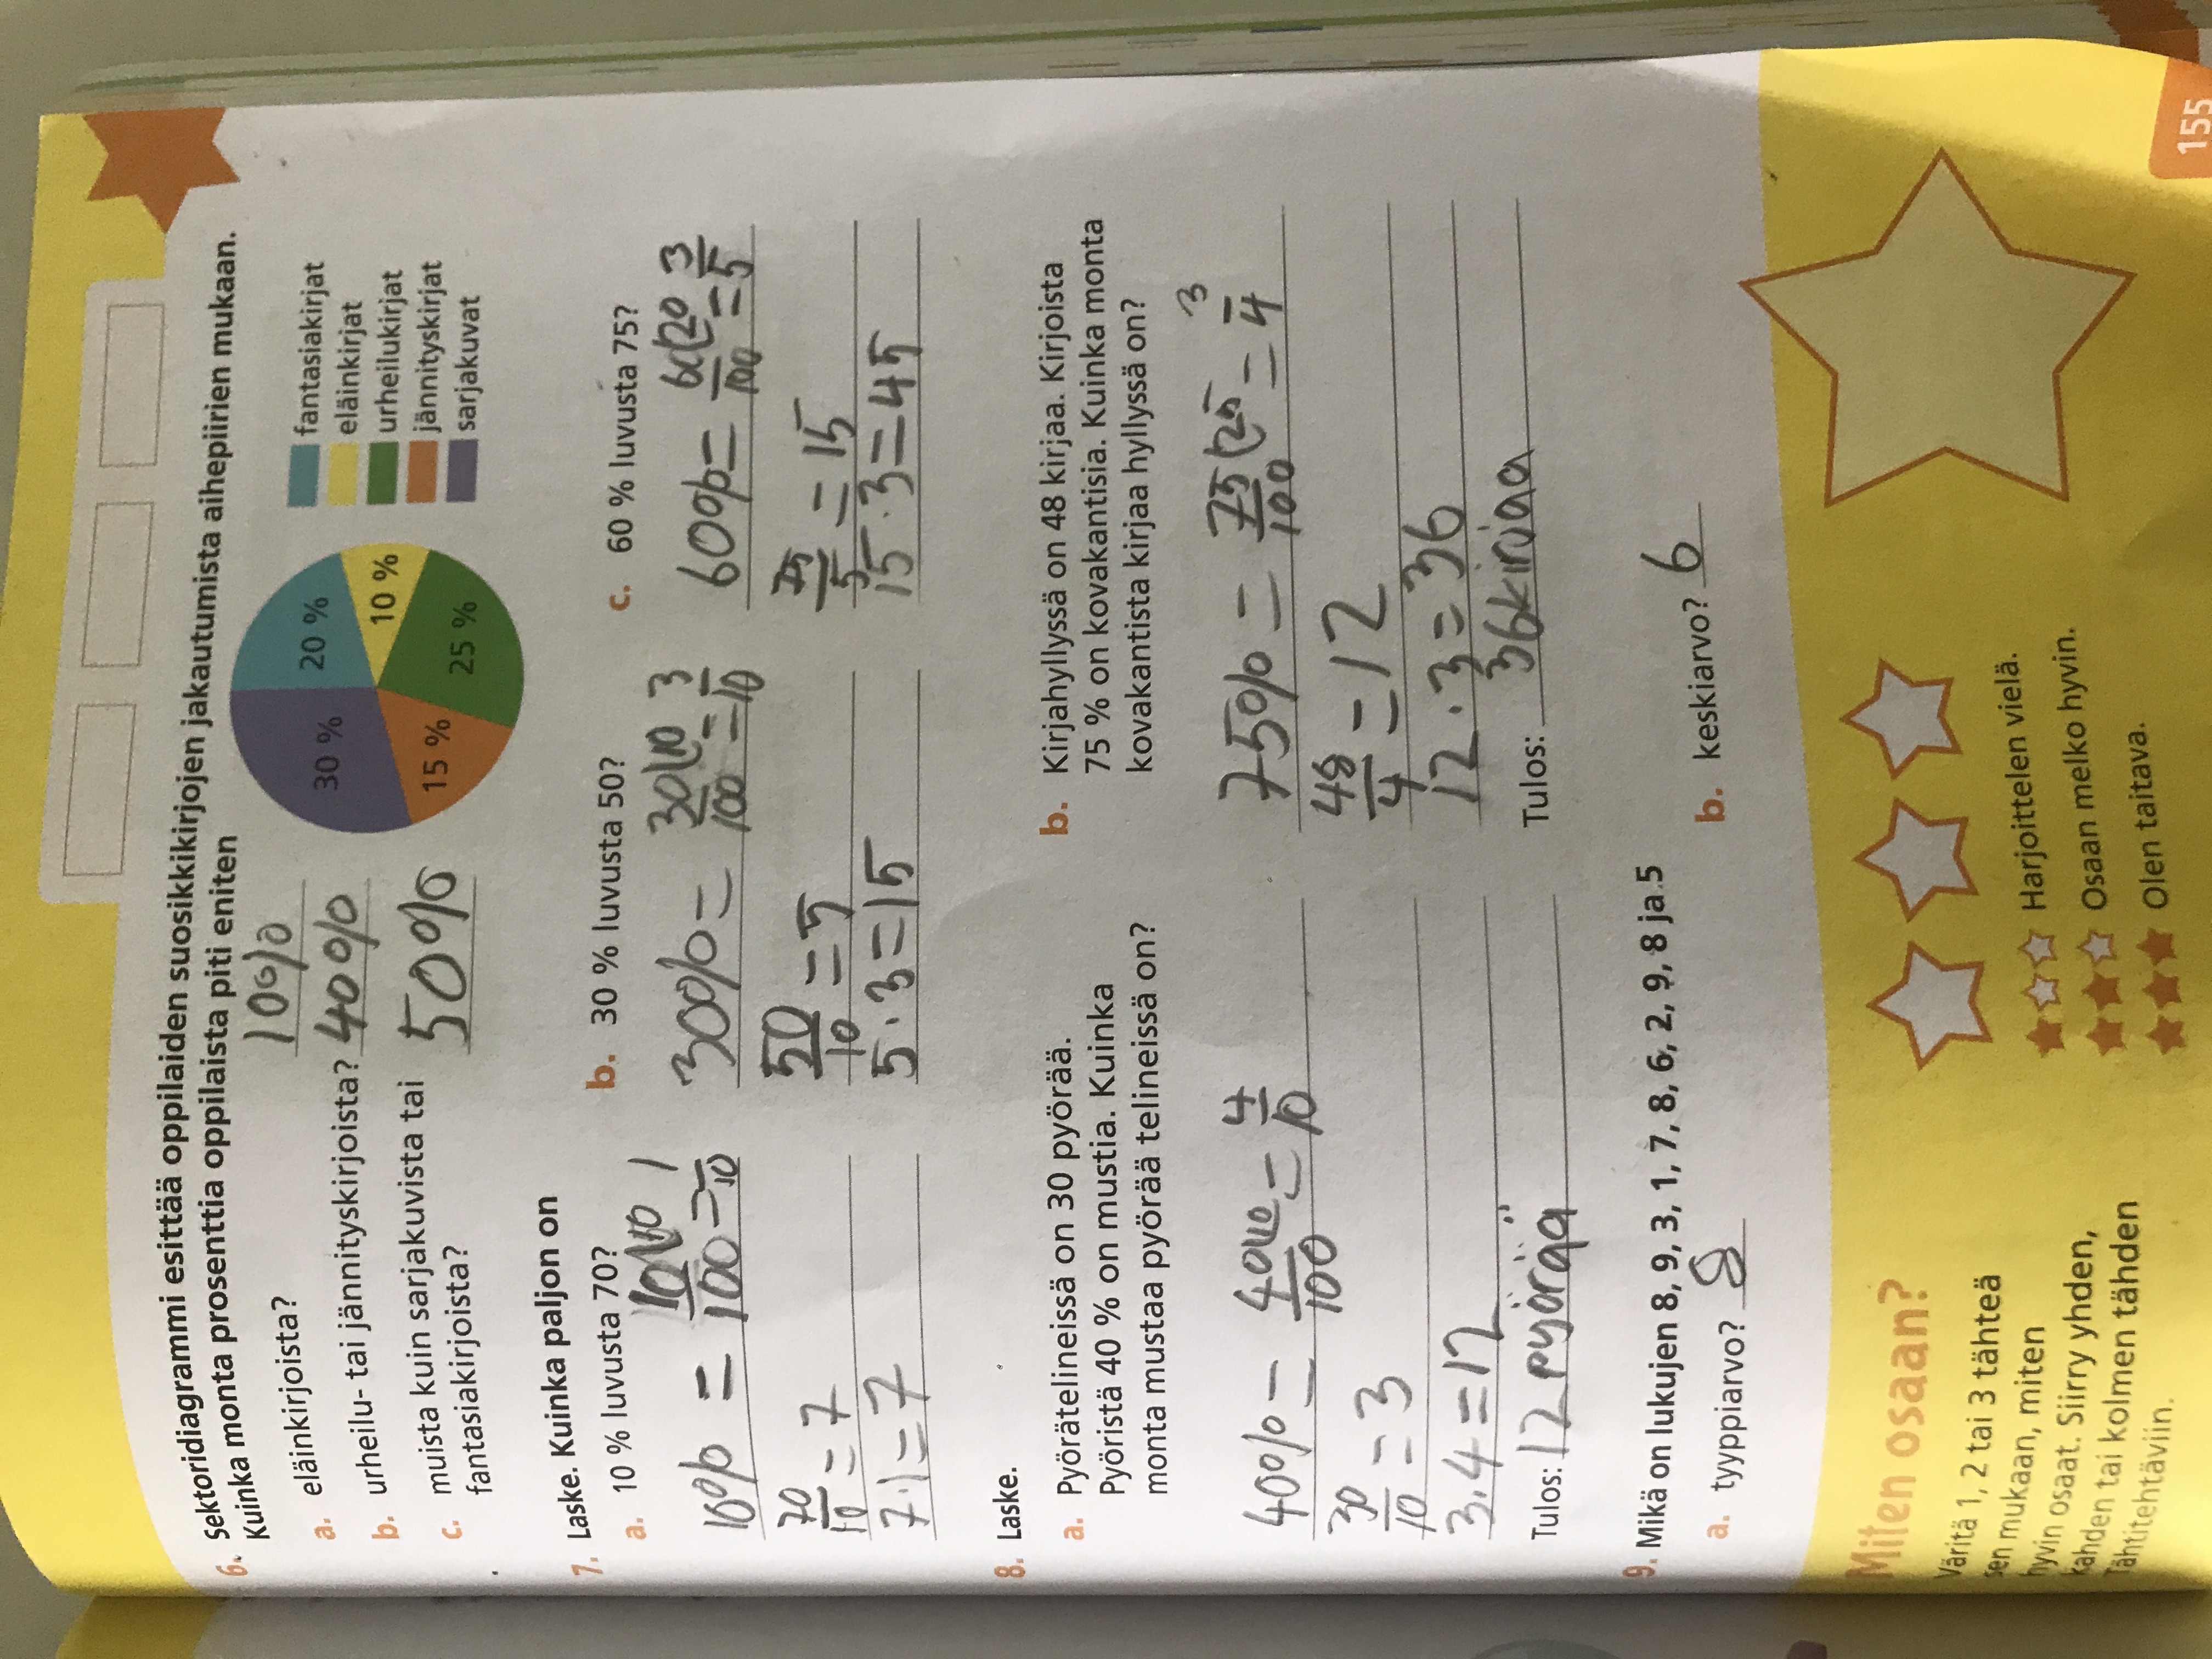 6. Sektoridiagrammi esittää oppilaiden suosikkikirjojen jakautumista aihepiirien mukaan.
Kuinka monta prosenttia oppilaista piti eniten
a. eläinkirjoista? 10%
b. urheilu- tai jännityskirjoista? 40%
c. muista kuin sarjakuvista tai
fantasiakirjoista? 50%
30 %
20 %
10 %
25 %
15 %
fantasiakirjat
eläinkirjat
urheilukirjat
jännityskirjat
sarjakuvat
7. Laske. Kuinka paljon on
a. 10 % luvusta 70?
10% = 10(10/100 = 1/10
70/10 = 7
7·1=7
b. 30 % luvusta 50?
30% = 30(10/100 = 3/10
50/10 = 5
5·3=15
c. 60 % luvusta 75?
60%= 60(20/100 = 3/5
75/5 = 15
15·3=45
8. Laske.
a. Pyörätelineissä on 30 pyörää.
Pyöristä 40 % on mustia. Kuinka
monta mustaa pyörää telineissä on?
40% = 40(10/100 = 4/10
30/10 = 3
3·4=12
Tulos: 12 pyörää
b. Kirjahyllyssä on 48 kirjaa. Kirjoista
75 % on kovakantisia. Kuinka monta
kovakantista kirjaa hyllyssä on?
75% = 75(25/100 = 3/4
48/4 = 12
12·3=36
Tulos: 36kirjaa
9. Mikä on lukujen 8, 9, 3, 1, 7, 8, 6, 2, 9, 8 ja 5
a. tyyppiarvo? 8
b. keskiarvo? 6
Miten osaan?
Väritä 1, 2 tai 3 tähteä
sen mukaan, miten
hyvin osaat. Siirry yhden,
kahden tai kolmen tähden
Tähtitehtäviin.
Harjoittelen vielä.
Osaan melko hyvin.
Olen taitava.
155